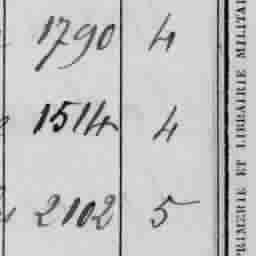 1790 4
1514 4
2102 5
PRIMERIE ET LIBRAIRIE MILITAI